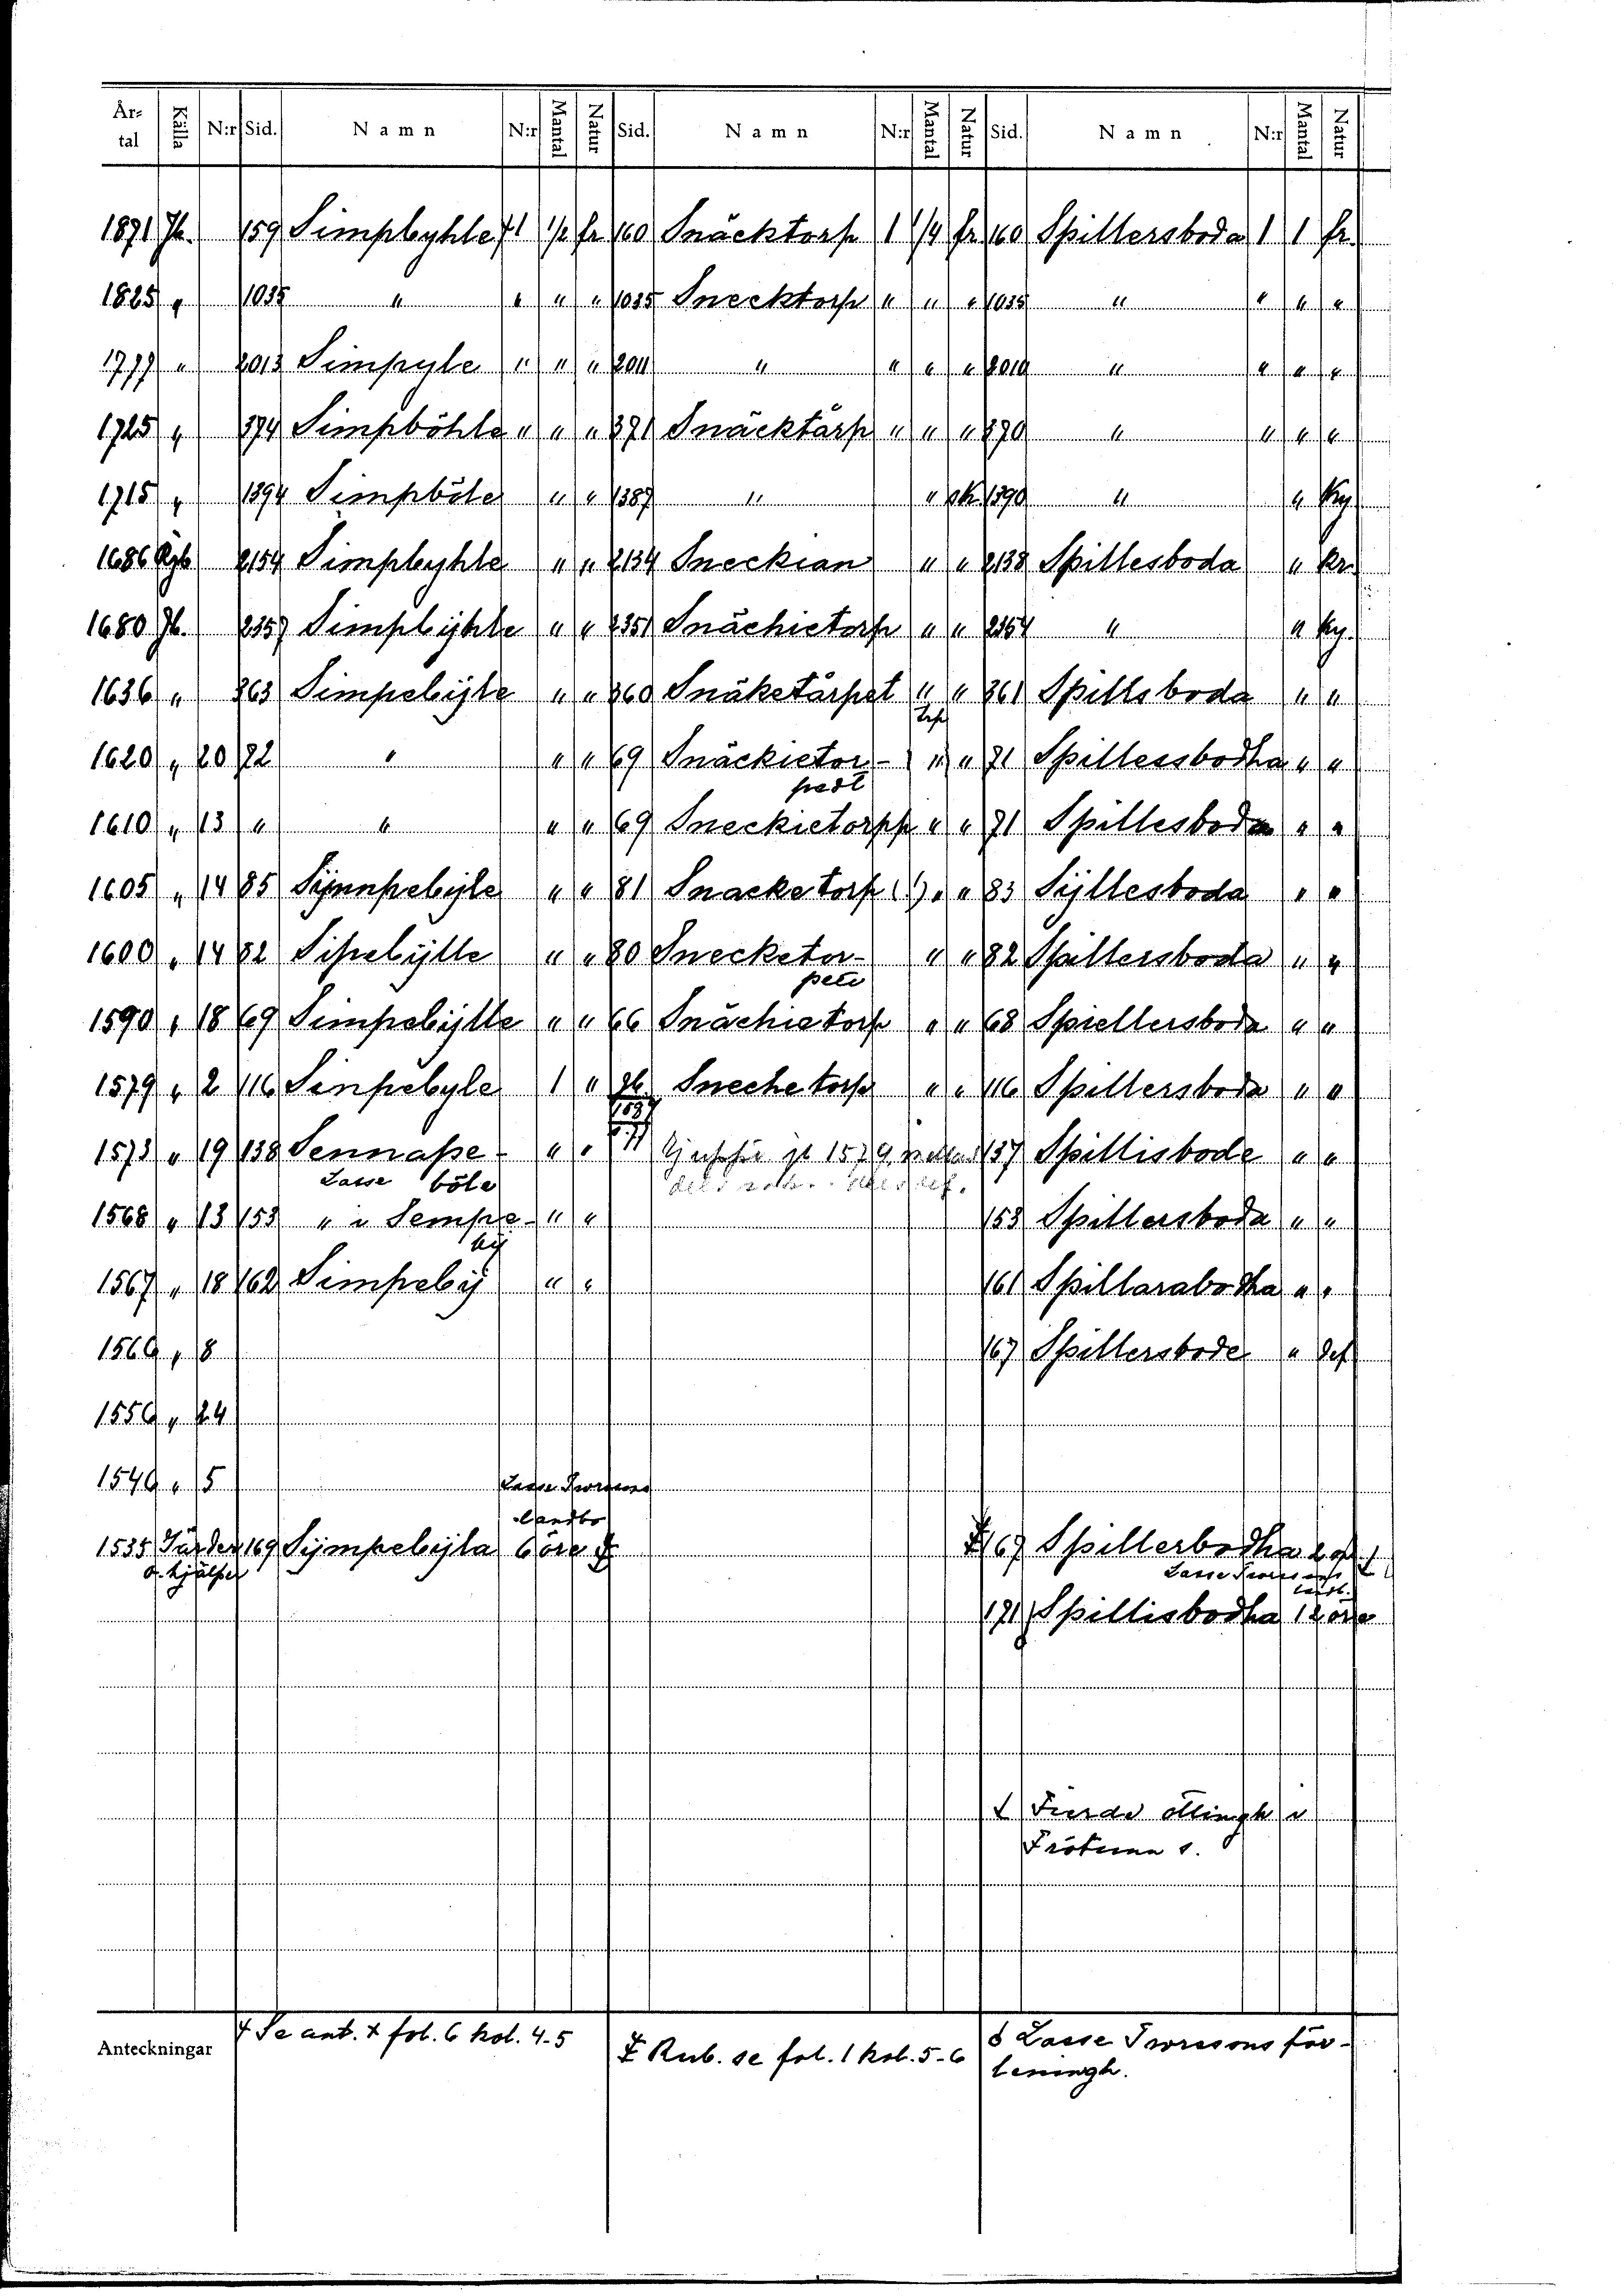 År-tal Källa N:r Sid. Namn N:r Mantal Natur Sid. Namn N:r Mantal Natur Sid. Namn N:r Mantal Natur
1871 Jb. 159 Simpbyhle 1 1/2 fr 160 Snäcktorp 1 1/4 fr 160 Spillersboda 1 1 fr.
1825 " 1035 " " " " 1035 Snecktorp " " " 1035 " " " "
1777 " 2013 Simpyle " " " 2011 " " " " 2010 " " " "
1725 " 374 Simpböhle " " " 371 Snäcktårp " " " 370 " " " "
1715 " 1394 Simpböle " " 1387 " " sk 1390 " " Ky
1686 Rgb 2154 Simpbyhle " " 2134 Sneckian " " 2138 Spillesboda " kr
1680 Jb. 2357 Simplijhle " " 2351 Snächietorp " " 2354 " " ky.
1636 " 363 Simpebijle " " 360 Snäketårpet " " 361 Spillsboda " "
1620 " 20 72 " " " 69 Snäckietor- trp " " 71 Spillessbodha " "
pedt
1610 " 13 " " " " 69 Sneckietorpp " " 71 Spillesboda " "
1605 " 14 85 Sijnnpebijle " " 81 Snacketorp (!) " " 83 Sijllesboda " "
1600 " 14 82 Sipebijlle " " 80 Snecketor- " " 82 Spillersboda " "
pett
1590 " 18 69 Simpebijlle " " 66 Snächietorp " " 68 Spiellersboda " "
1579 " 2 116 Sinpebyle 1 " Jb. Snechetorp " " 116 Spillersboda " "
1573 " 19 138 Sennaße- " " 1579 137 Spillisbode " "
Lasse böle
1568 " 13 153 " i Sempe- " " 153 Spillersboda " "
bij
1567 " 18 162 Simpebij " " 161 Spillarabodha " "
1560 " 8 167 Spillersbode " Sef
1550 " 24
1540 " 5
Lasse Tworsons
landbo
1535 Gärder 169 Sijmpebijla 6 öre 167 Spillerbodha
o. hjälper Lasse Tworsons
landb.
171 Spillisbodha 12 öre
Fierde ottingh i
Frötuna s.
Anteckningar Se ant. x fol. 6 kol. 4-5 Rub. se fol. 1 kol. 5-6 Lasse Tworsons för-
leningh.